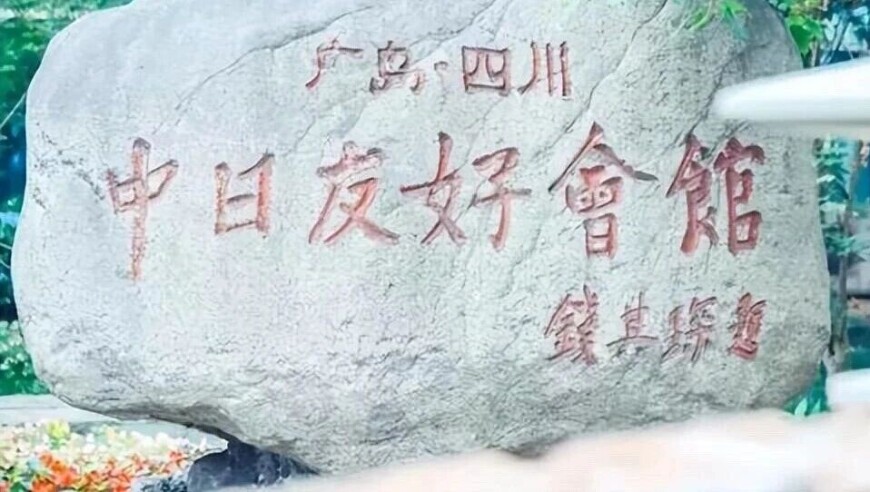 广岛·四川
中日友好會館
錢其琛題